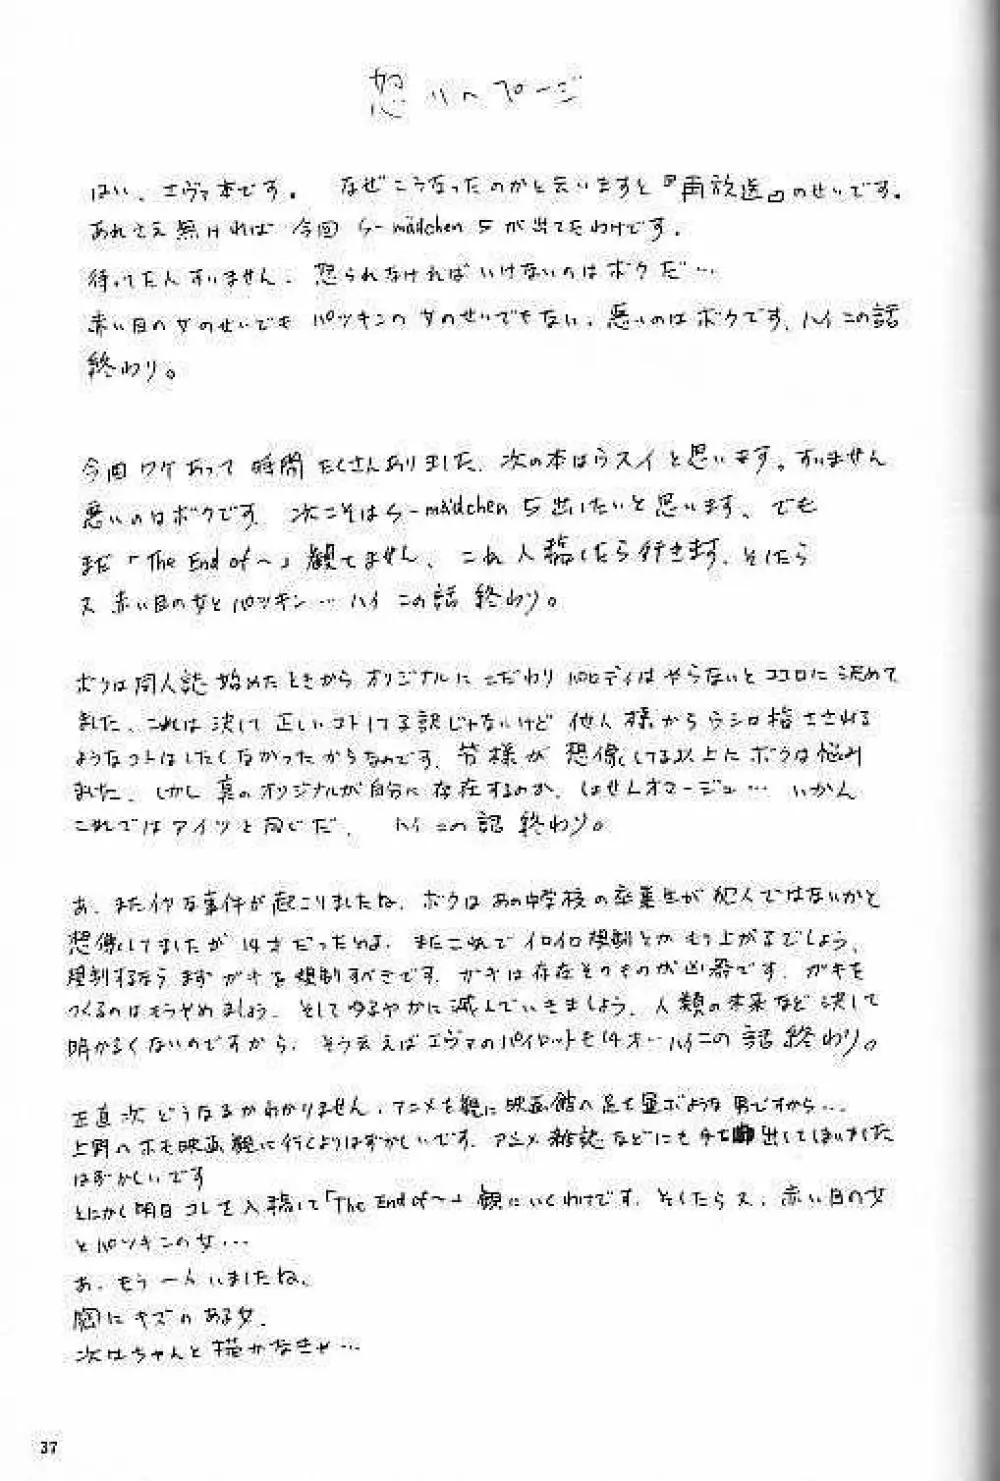 怒りのページ
はい、エヴァ本です。 なぜこうなったのかと云いますと『再放送』のせいです。
あれさえ無ければ 今回 S-mädchen 5 が出てたわけです。
待ってた人すいません、怒られなければいけないのはボクだ…
赤い目の女のせいでも パツキンの女のせいでもない、悪いのはボクです、ハイ この話
終わり。
今回ワケあって 時間 たくさんありました、次の本はウスイと思います。すいません
悪いのはボクです。次こそは S-mädchen 5 出したいと思います、でも
まだ「The End of〜」観てません、これ入稿したら行きます、そしたら
又 赤い目の女とパツキン… ハイ この話 終わり。
ボクは同人誌始めたときから オリジナルにこだわり パロディはやらないとココロに決めて
ました、これは 決して 正しいコトしてる訳じゃないけど 他人様からうシロ指さされる
ようなコトはしたくなかったからなのです、皆様が 想像してる以上にボクは悩み
ました、しかし 真のオリジナルが自分に存在するのか、しょせんオマージュ… いかん
これではアイツと同じだ、 ハイ この話 終わり。
あ、またイヤな事件が起こりましたね、ボクは あの中学校の卒業生が 犯人ではないかと
想像してましたが 14才だったのよ、またこれで イロイロ規制とか もり上がるでしょう、
規制するなら まず ガキを規制すべきです、ガキは存在そのものが凶器です、ガキを
つくるのはもうやめましょう、そしてゆるやかに滅んでいきましょう、人類の未来など決して
明かるくないのですから、そう云えばエヴァのパイロットも14才… ハイこの話 終わり。
正直次 どうなるかわかりません、アニメを観に映画館へ足を運ぶような男ですから…
上野へホモ映画観に行くよりはずかしいです、アニメ雑誌などにも手を出してしまいました
はずかしいです
とにかく明日コレを入稿して「The End of〜」観にいくわけです、そしたら又、赤い目の女
とパツキンの女…
あ、もう一人いましたね、
胸にキズのある女、
次はちゃんと描かなきゃ…
37